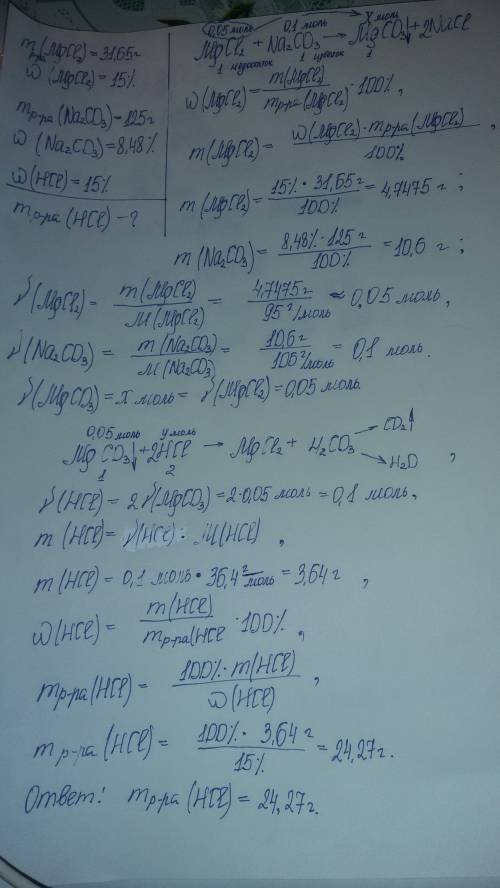 m р-ра (MgCl₂) = 31,65 г
ω (MgCl₂) = 15%
m р-ра (Na₂CO₃) = 125 г
ω (Na₂CO₃) = 8,48%
ω (HCl) = 15%
m р-ра (HCl) - ?
0,05 моль 0,1 моль x моль
MgCl₂ + Na₂CO₃ → MgCO₃↓ + 2NaCl
1 недостаток 1 избыток 1
ω(MgCl₂) = m(MgCl₂) / m р-ра (MgCl₂) · 100%,
m(MgCl₂) = ω(MgCl₂) · m р-ра (MgCl₂) / 100%,
m(MgCl₂) = 15% · 31,65 г / 100% = 4,7475 г;
m(Na₂CO₃) = 8,48% · 125 г / 100% = 10,6 г;
ν(MgCl₂) = m(MgCl₂) / M(MgCl₂) = 4,7475 г / 95 г/моль ≈ 0,05 моль,
ν(Na₂CO₃) = m(Na₂CO₃) / M(Na₂CO₃) = 10,6 г / 106 г/моль = 0,1 моль.
ν(MgCO₃) = x моль = ν(MgCl₂) = 0,05 моль.
0,05 моль y моль
MgCO₃↓ + 2HCl → MgCl₂ + H₂CO₃ → CO₂↑ → H₂O,
1 2
ν(HCl) = 2ν(MgCO₃) = 2·0,05 моль = 0,1 моль,
m(HCl) = ν(HCl) · M(HCl),
m(HCl) = 0,1 моль · 36,4 г/моль = 3,64 г,
ω(HCl) = m(HCl) / m р-ра (HCl · 100%,
m р-ра (HCl) = 100% · m(HCl) / ω(HCl),
m р-ра (HCl) = 100% · 3,64 г / 15% = 24,27 г.
Ответ: m р-ра (HCl) = 24,27 г.